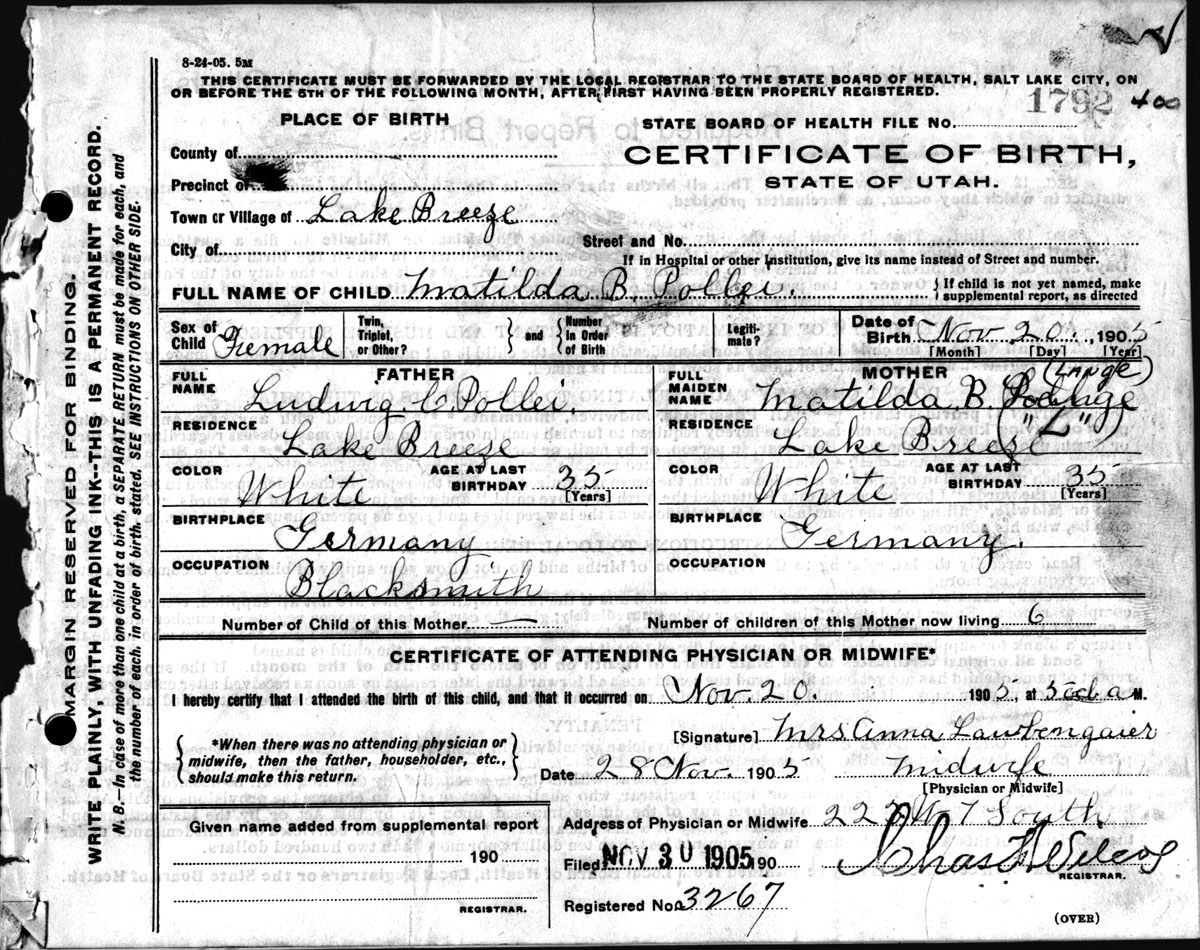 8-24-05. 5M
THIS CERTIFICATE MUST BE FORWARDED BY THE LOCAL REGISTRAR TO THE STATE BOARD OF HEALTH, SALT LAKE CITY, ON
OR BEFORE THE 5TH OF THE FOLLOWING MONTH, AFTER FIRST HAVING BEEN PROPERLY REGISTERED.
1792 400
PLACE OF BIRTH
STATE BOARD OF HEALTH FILE No.
County of
CERTIFICATE OF BIRTH,
Precinct of
STATE OF UTAH.
Town or Village of Lake Breeze
City of
Street and No.
If in Hospital or other Institution, give its name instead of Street and number.
FULL NAME OF CHILD Matilda B. Pollei. { If child is not yet named, make supplemental report, as directed
Sex of Child Female
Twin, Triplet, or Other? } and { Number in Order of Birth
Legitimate?
Date of Birth Nov. 20., 1905
[Month] [Day] [Year]
FATHER
FULL NAME Ludwig C. Pollei.
RESIDENCE Lake Breeze
COLOR White AGE AT LAST BIRTHDAY 35 [Years]
BIRTHPLACE Germany
OCCUPATION Blacksmith
MOTHER
(LANGE)
FULL MAIDEN NAME Matilda B.
"L"
RESIDENCE Lake Breeze
COLOR White AGE AT LAST BIRTHDAY 35 [Years]
BIRTHPLACE Germany.
OCCUPATION
Number of Child of this Mother —
Number of children of this Mother now living 6
CERTIFICATE OF ATTENDING PHYSICIAN OR MIDWIFE*
I hereby certify that I attended the birth of this child, and that it occurred on Nov. 20. 1905, at M.
{ *When there was no attending physician or midwife, then the father, householder, etc., should make this return. }
[Signature] Mrs Anna Laubengaier
Date 28 Nov. 1905 midwife
[Physician or Midwife]
Given name added from supplemental report
190
REGISTRAR.
Address of Physician or Midwife W 7 South
Filed NOV 30 1905 190 Chas
REGISTRAR.
Registered No. 3267
(OVER)
MARGIN RESERVED FOR BINDING.
WRITE PLAINLY, WITH UNFADING INK--THIS IS A PERMANENT RECORD.
N. B.—In case of more than one child at a birth, a SEPARATE RETURN must be made for each, and
the number of each, in order of birth, stated. SEE INSTRUCTIONS ON OTHER SIDE.